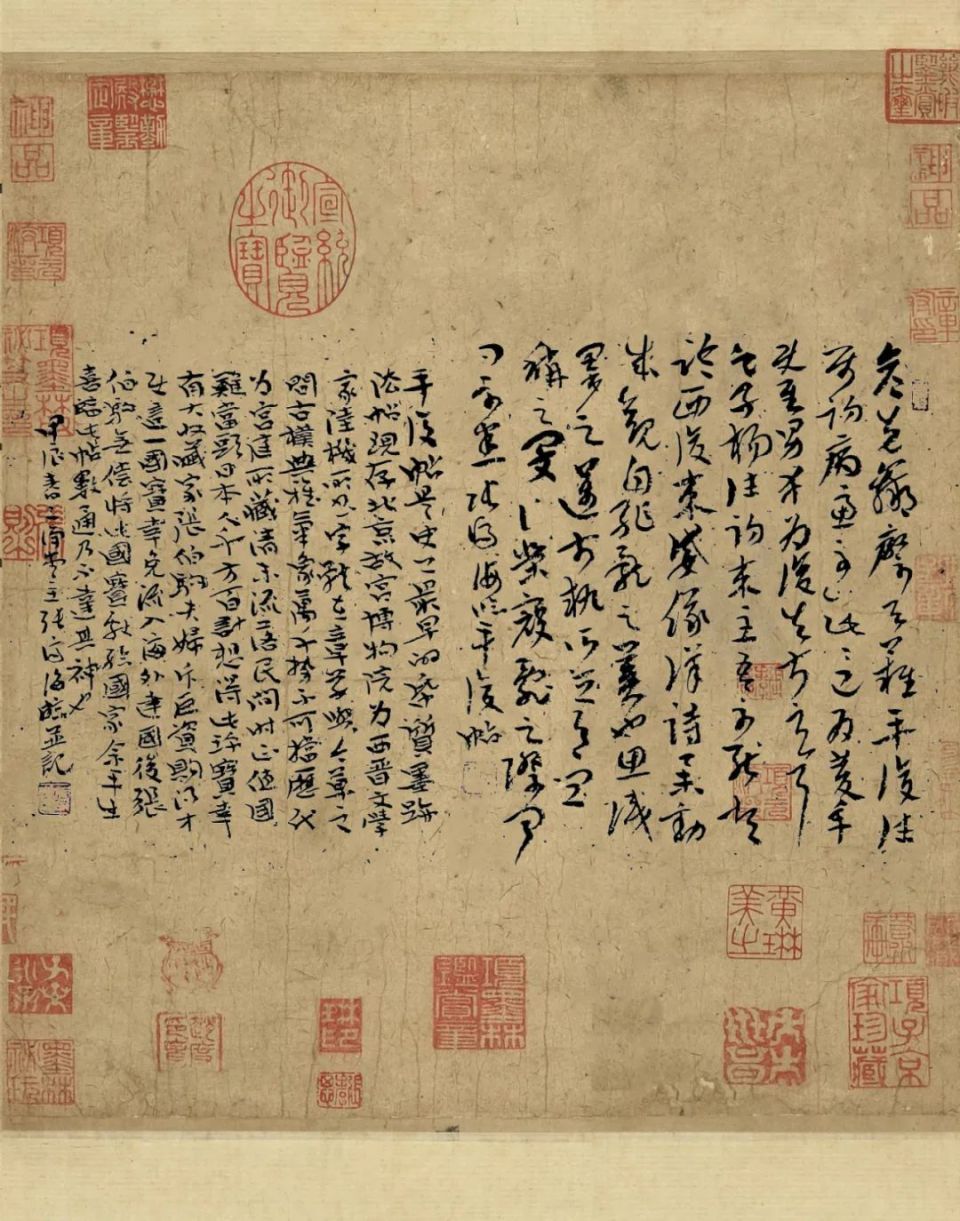 彦先羸瘵恐難平復往
屬初病慮不止此已為慶承
使唯男幸為復失前憂耳
吳子楊往初來主吾不能盡
臨西復來威儀詳跱舉動
成觀自軀體之美也思識
量之邁前執所恒有宜
稱之夏伯榮寇亂之際聞
問不悉 張海臨平復帖
平復帖是史上最早的紙質墨跡
法帖現存北京故宮博物院為西晉文學
家陸機所書字體在章草與今草之
間古樸典雅氣象萬千勢不可擋歷代
為宮廷所藏清末流落民間時正值國
難當頭日本人千方百計想得此珍寶幸
有大收藏家張伯駒夫婦斥巨資購得才
使這一國寶幸免流入海外建國後張
伯駒無償將此國寶獻給國家余平生
喜臨此帖數通乃不達其神也
甲辰春主張海臨並記
宣統御覽之寶
懋勤殿鑒定章
神品
神品
黃琳美之
項子京家珍藏
項墨林鑑賞章
琳印